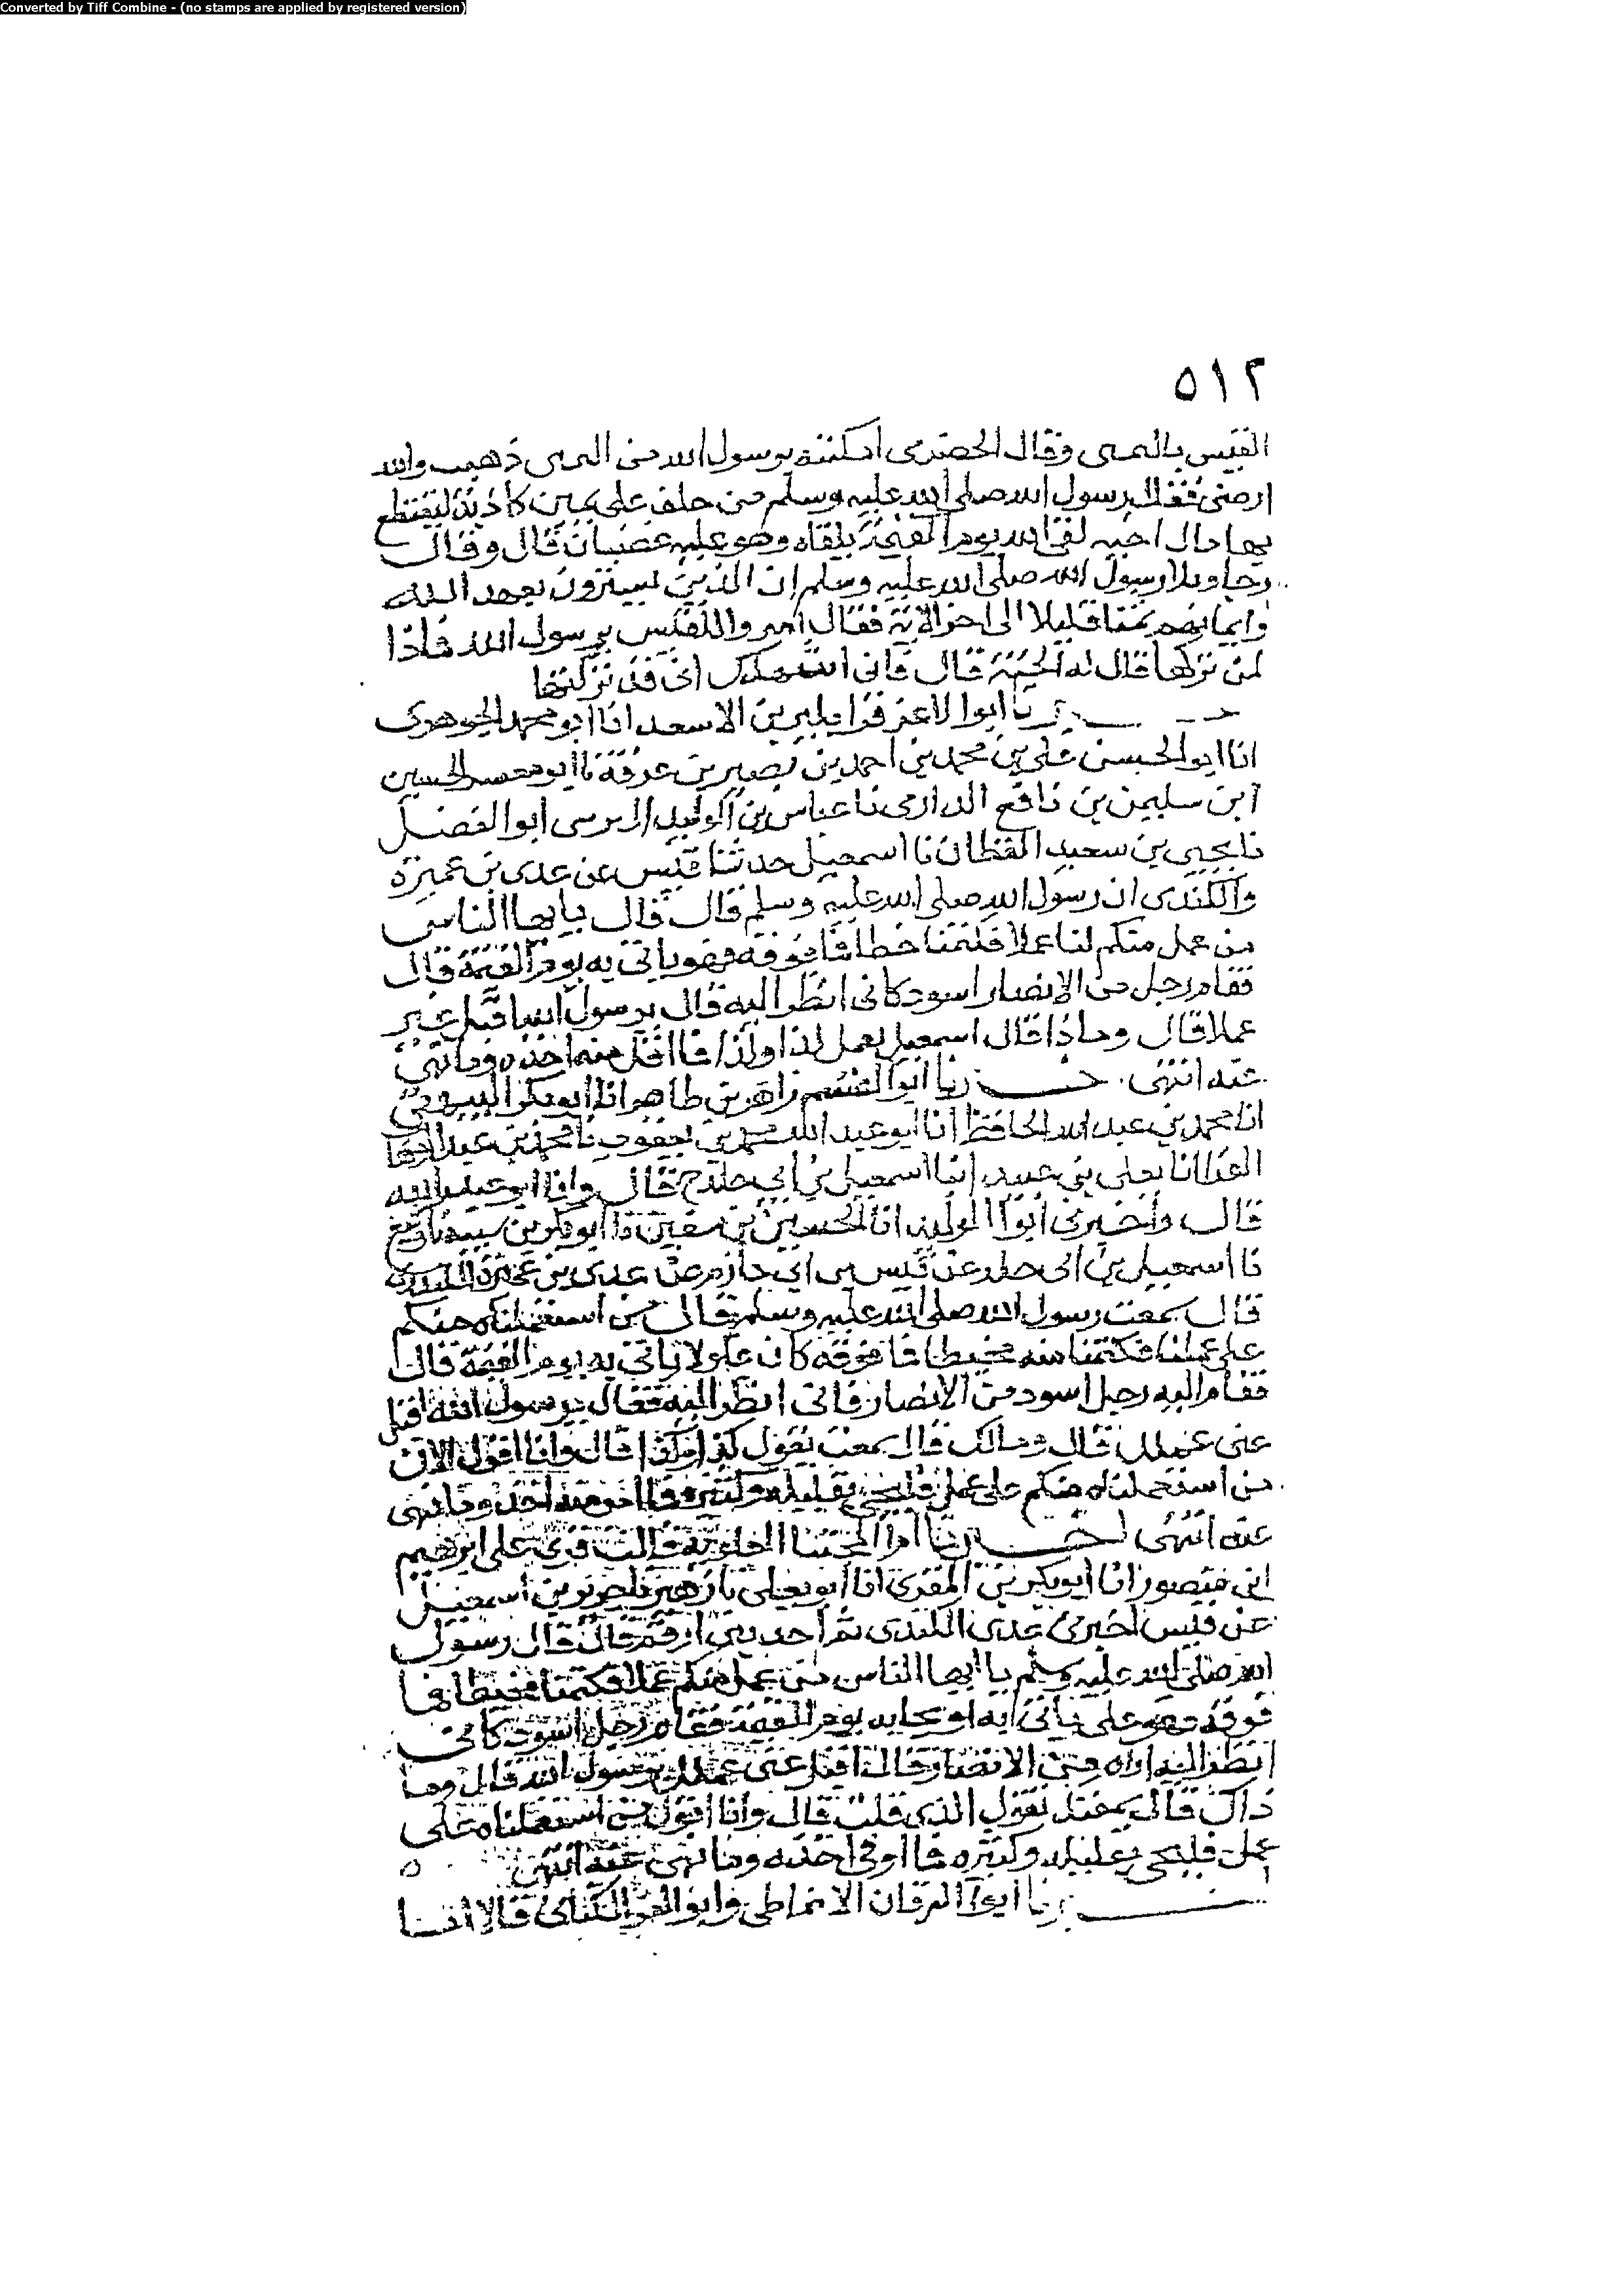 Converted by Tiff Combine - (no stamps are applied by registered version)
٥١٢
القيس باليمين وقال الحضرمى امكنته يرسول الله من اليمين ذهبت والله
ارضى فقال رسول الله صلى الله عليه وسلم من حلف على يمين كاذبة ليقتطع
بها مال اخيه لقى الله يوم القيمة يلقاه وهو عليه غضبان قال وقال
رجا وتلا رسول الله صلى الله عليه وسلم ان الذين يشترون بعهد الله
وايمانهم ثمنا قليلا الى اخر الآية فقال امرو القيس يرسول الله فماذا
لمن تركها قال له الجنة قال فانى اشهدك انى قد تركتها
ـرنا ابوا الاعز قراتكين بن الاسعد انا ابو محمد الجوهرى
انا ابو الحسن على بن محمد بن احمد بن نصير بن عرفة نا ابو محمد الحسين
ابن سليمن بن نافع الدارمى نا عباس بن الوليد النرسى ابوا الفضل
نا يحيى بن سعيد القطان نا اسمعيل حدثنا قيس عن عدى بن عميرة
والكندى ان رسول الله صلى الله عليه وسلم قال قال يايها الناس
من عمل منكم لنا عملا فكتمنا خطا فما فوقه فهو ياتى به يوم القيمة قال
فقام رجل من الانصار اسود كانى انظر اليه قال يرسول الله اقبل غير
عملا قال وماذا قال اسمعيل يعمل لذا ولذا فما اقل منه اخذه وما نهى
عنه انتهى خـــرنا ابوا القسم زاهر بن طاهر انا ابو بكر البيهقى
انا محمد بن عبد الله الحافظ انا ابو عبد الله محمد بن يعقوب نا محمد بن عبد الوهاب
الفرا انا يعلى بن عبيد انا اسمعيل بن ابى خلد ح قال وانا ابو عبد الله
قال واخبرنى ابوا الوليد انا الحسين بن سفين نا ابو بكر بن شيبه نا وكيع
نا اسمعيل بن ابى خلد عن قيس بن ابى حازم عن عدى بن عميرة الكندى
قال سمعت رسول الله صلى الله عليه وسلم قال من استعملناه منكم
على عملنا فكتمنا منه مخيطا فما فوقه كان غلولا ياتى به يوم القيمة قال
فقام اليه رجل اسود من الانصار فانى انظر اليه فقال يرسول الله اقبل
عنى عملك قال ومالك قال سمعت يقول كذا وكذا قال وانا اقول الان
من استعملناه منكم على عمل فليجى بقليله وكثيره فما اوتى منه اخذ وما نهى
عنه انتهى اخـــرتنا ام المجتبا العلوية قالت قرى على ابرهيم
ابن منصور انا ابو بكر بن المقرى انا ابو يعلى نا زهير نا جرير بن اسمعيل
عن قيس اخبرنى عدى الكندى ثم احد بنى ارقم قال قال رسول
الله صلى الله عليه وسلم يا ايها الناس من عمل منكم عملا فكتمنا مخيطا فما
فوقه فهو على ياتى به او يجا به يوم القيمة فقام رجل اسود كانى
انظر اليه اراه من الانصار قال اقبل عنى عملك يرسول الله قال وما
ذاك قال سمعتك تقول الذى قلت قال وانا اقول من استعملناه على
عمل فليجى بقليله وكثيره فما اوتى اخذه وما نهى عنه انتهى
ـرنا ابوا البرقان الانماطى وابو العز الكتانى قالا انا